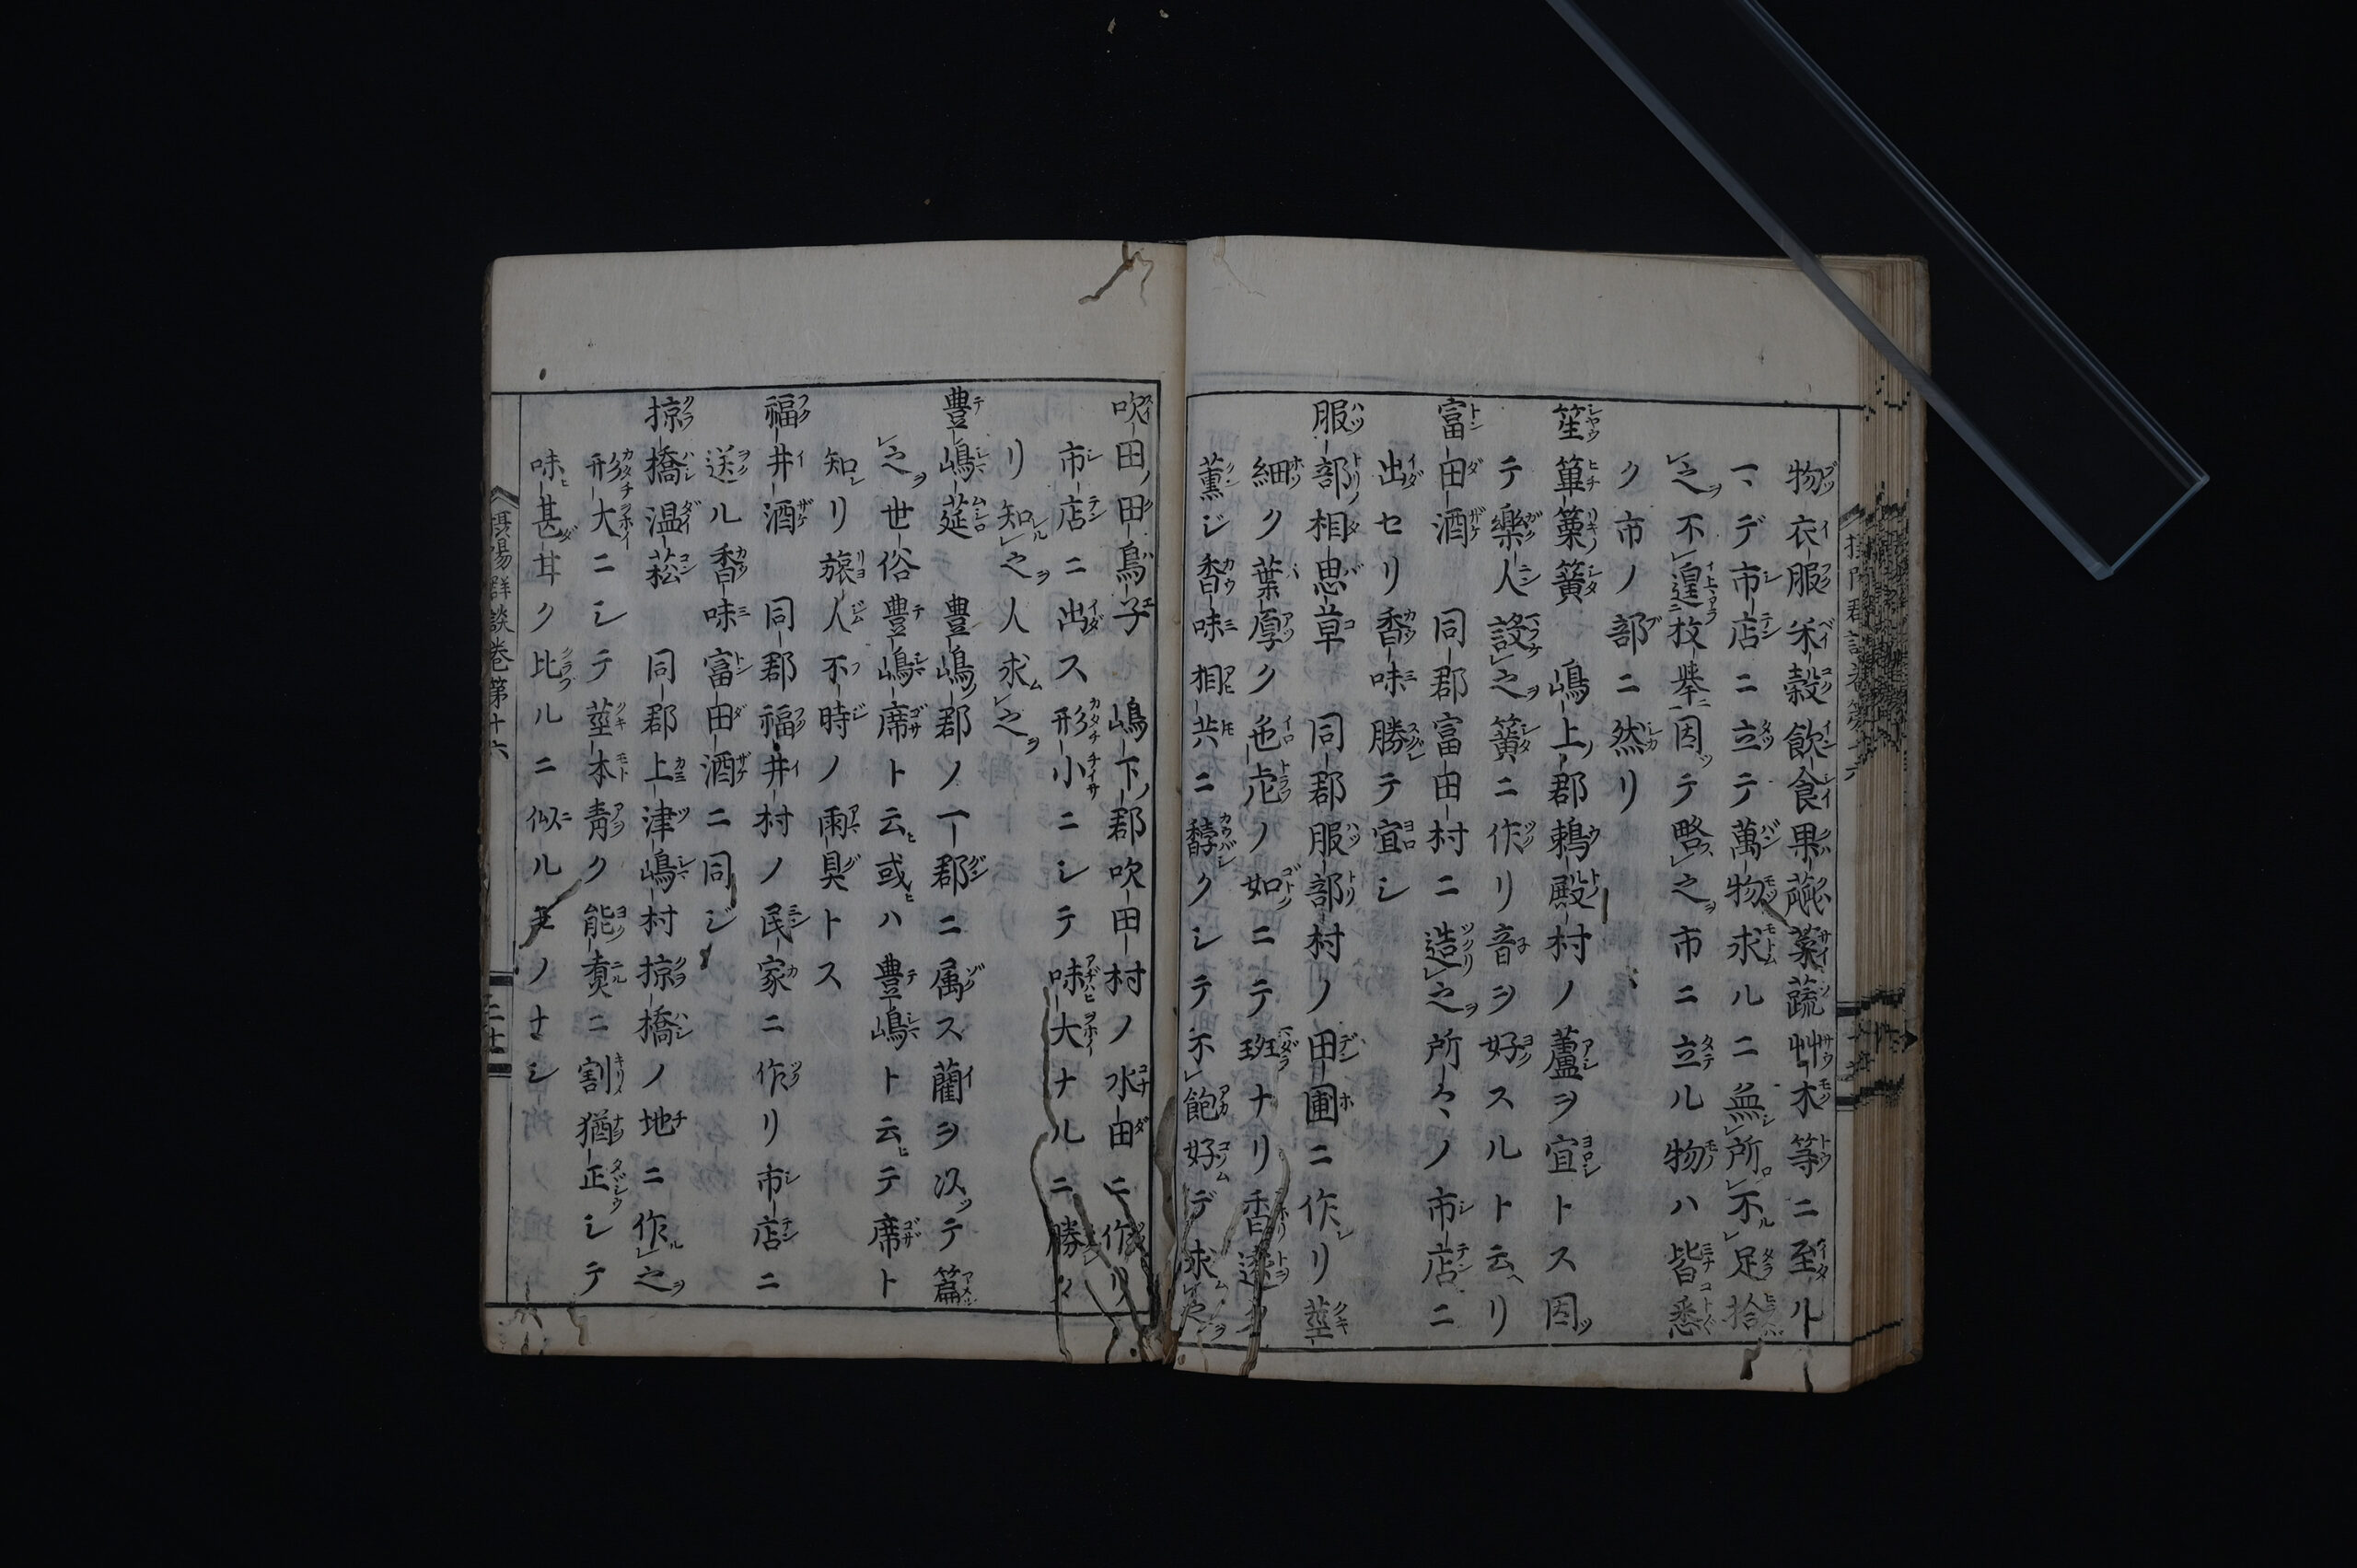 物衣服禾穀飲食果蓏菜蔬艸木等ニ至ル
マデ市店ニ立テ萬物求ルニ無所不足拾
之不遑枚挙因テ略之市ニ立ル物ハ皆悉
ク市ノ部ニ然リ
笙篳篥簧 嶋上郡鵜殿村ノ蘆ヲ宜トス因
テ樂人設之簧ニ作リ音ヲ好スルト云リ
富田酒 同郡富田村ニ造之所々ノ市店ニ
出セリ香味勝テ宜シ
服部相思草 同郡服部村ノ田圃ニ作リ莖
細ク葉厚ク色虎ノ如ニテ斑ナリ香遠ク
薫ジ香味相共ニ馥クシテ不飽好デ求
吹田ノ田烏子 嶋下郡吹田村ノ水田ニ作リ
市店ニ出ス形小ニシテ味大ナルニ勝タ
リ知之人求之
豊嶋莚 豊嶋郡ノ一郡ニ属ス藺ヲ以テ篇
之世俗豊嶋席ト云或ハ豊嶋ト云テ席ト
知リ旅人不時ノ雨具トス
福井酒 同郡福井村ノ民家ニ作リ市店ニ
送ル香味富田酒ニ同ジ
掠橋温菘 同郡上津嶋村掠橋ノ地ニ作之
形大ニシテ莖本青ク能煮ニ割猶正シテ
味甚甘ク比ルニ似ル者ノナシ
摂陽群談巻第十六
二十